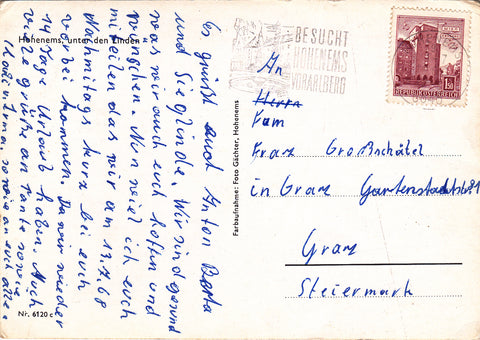 Hohenems, unter den Linden
Es grüßt euch Anton Berta
und Sieglinde. Wir sind gesund
was wir auch euch hoffen und
wünschen. Nun will ich euch
mitteilen das wir am 13.7.68
Nachmitags kurz bei euch
vorbei kommen. Da wir wieder
14 Tage Urlaub haben. Auch
viele grüße an Tante sowie
sowie an euch alle.
Nr. 6120 c
Farbaufnahme: Foto Gächter, Hohenems
BESUCHT
HOHENEMS
VORARLBERG
1.50
REPUBLIK ÖSTERREICH
An
Herrn
Fam
Franz Großschädel
in Graz Gartenstadtstr
Graz
Steiermark